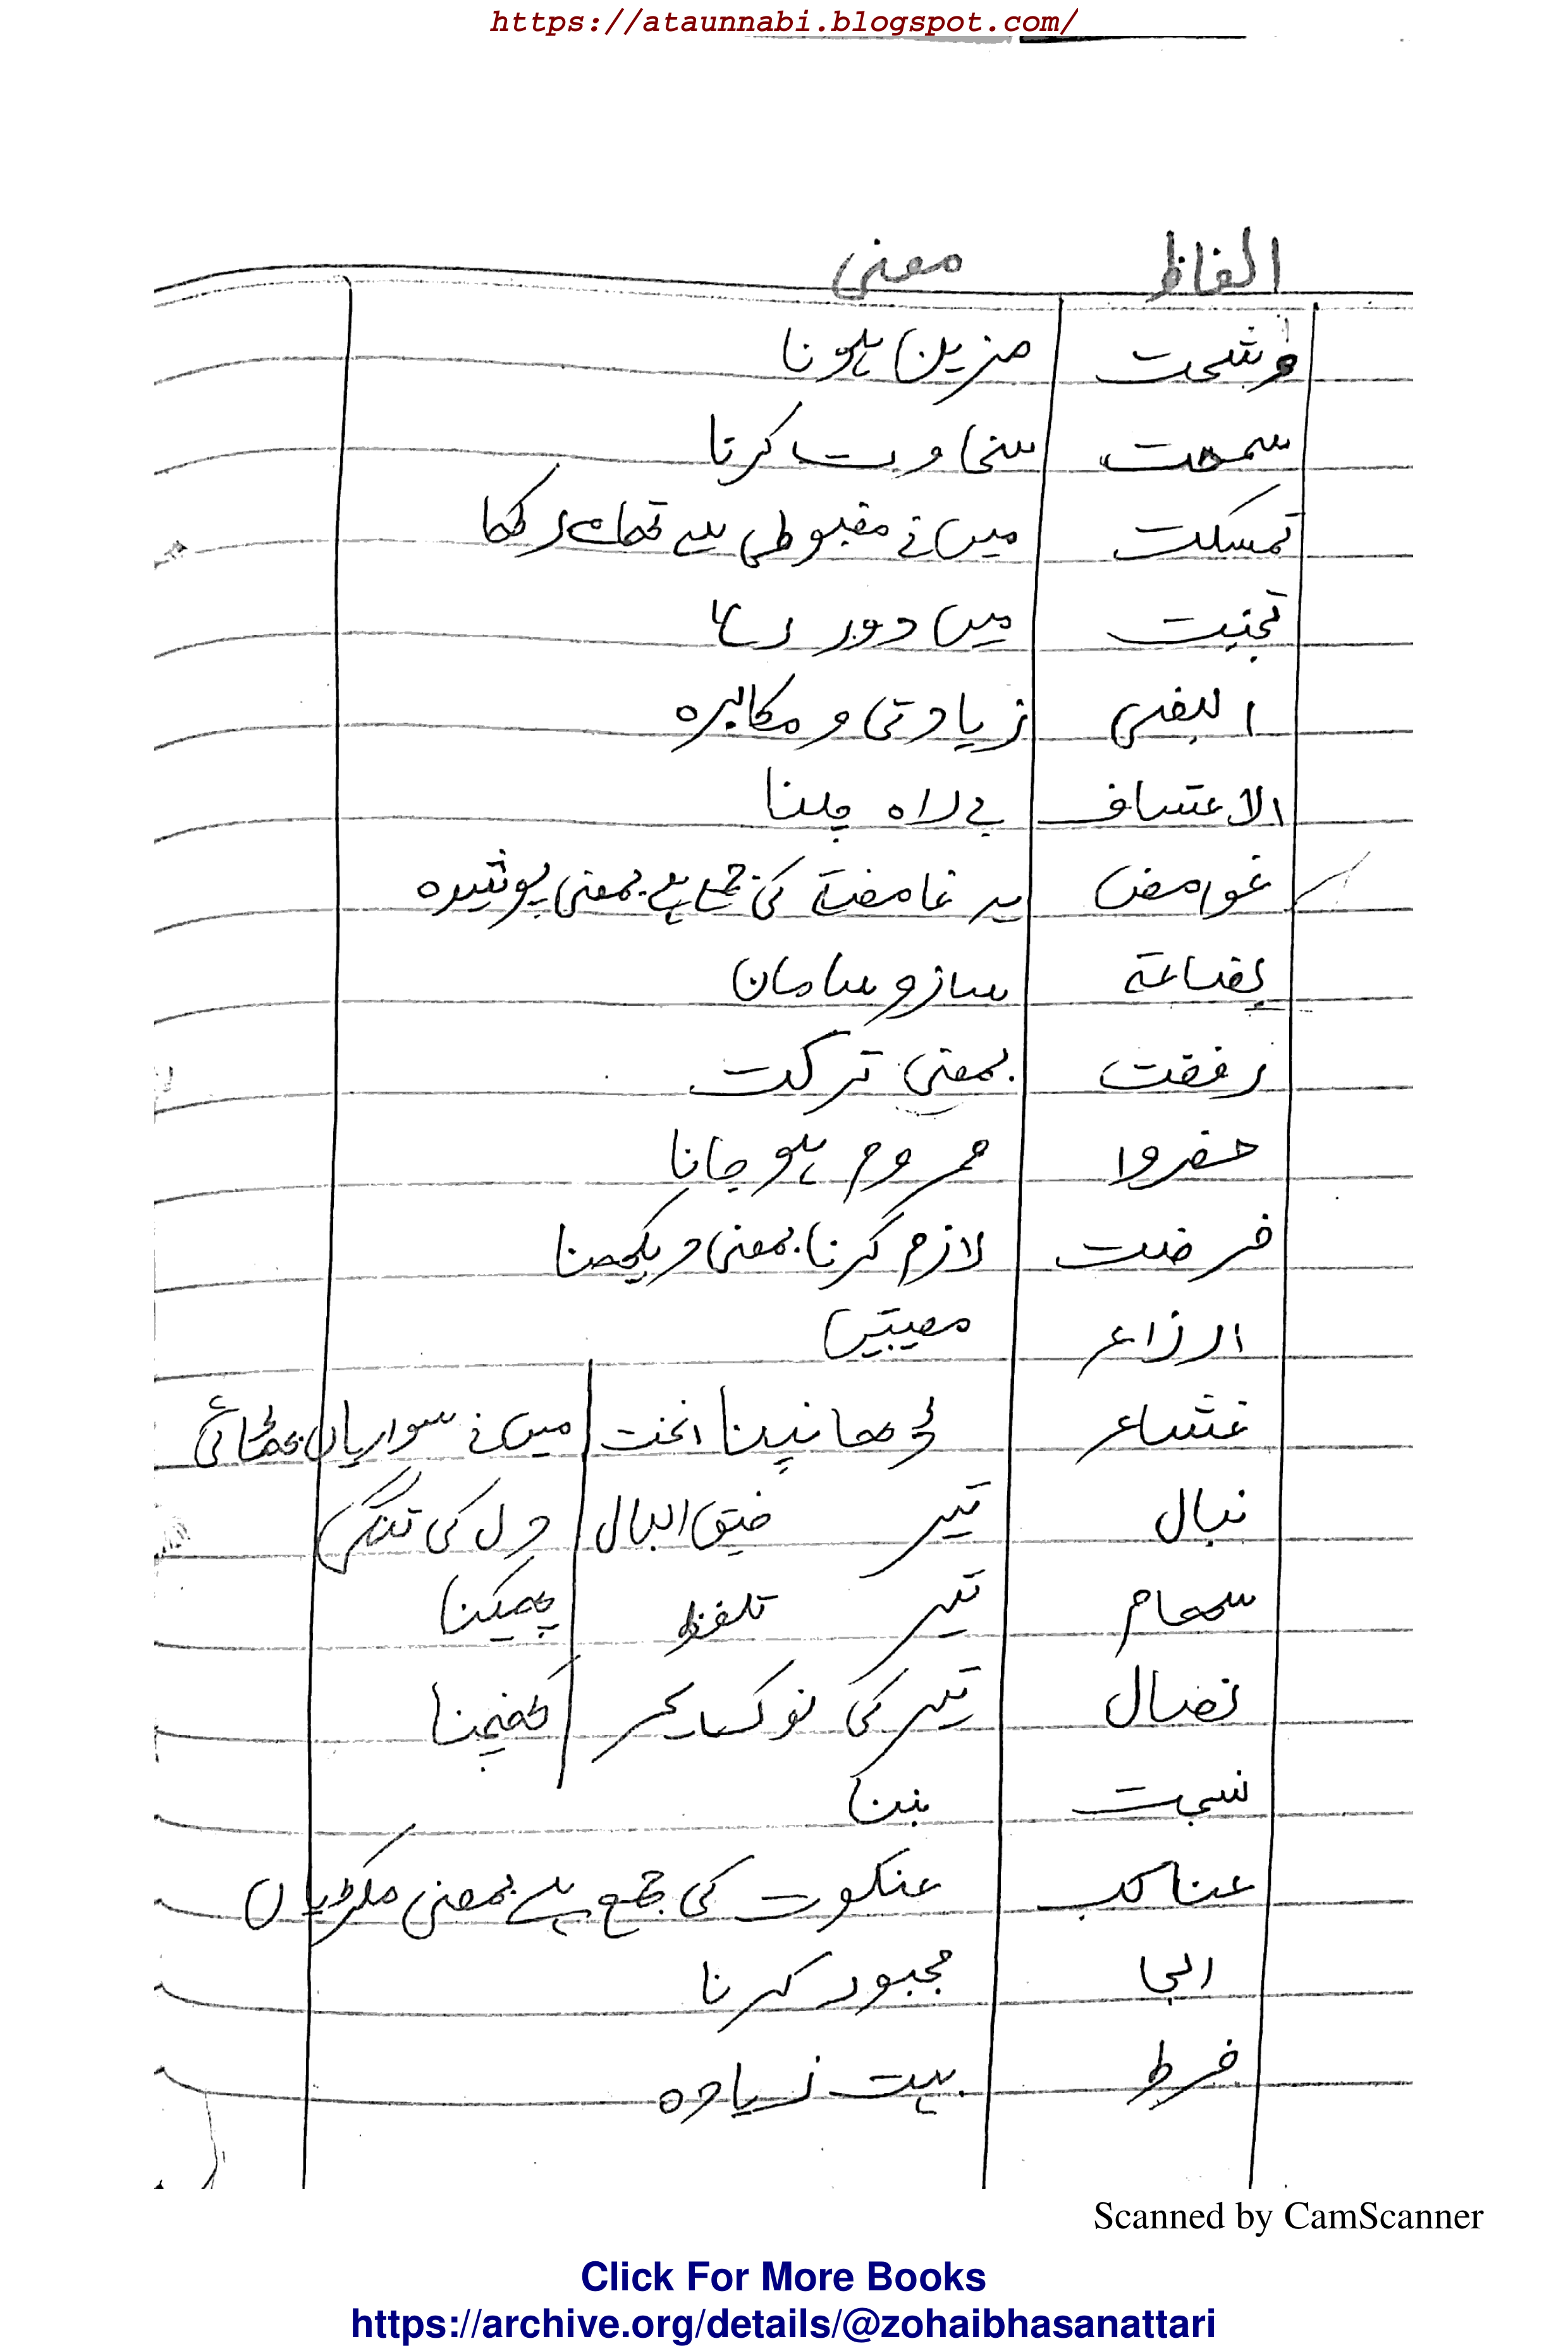 https://ataunnabi.blogspot.com/
الفاظ معنی
وشحت مزین ہونا
سمحت سخاوت کرنا
تمسکت میں نے مضبوطی سے تھامے رکھا
تجنبت میں دور رہا
البغی زیادتی و مکابرہ
الاعتساف بے راہ چلنا
غوامض یہ غامضۃ کی جمع ہے بمعنی پوشیدہ
بضاعۃ سازو سامان
رفضت بمعنی ترکت
حضروا محروم ہو جانا
فرضت لازم کرنا بمعنی دیکھنا
الرزاء مصیبتیں
غشاء ڈھانپنا انخت میں نے سواریاں بٹھائی
نبال تیر ضیق البال دل کی تنگی
سھام تیر تلفظ پھیکنا
نصال تیر کی نوک کھینچنا
نسجت بننا
عناکب عنکوت کی جمع ہے بمعنی مکڑیاں
الجا مجبور کرنا
فرط بہت زیادہ
Scanned by CamScanner
Click For More Books
https://archive.org/details/@zohaibhasanattari